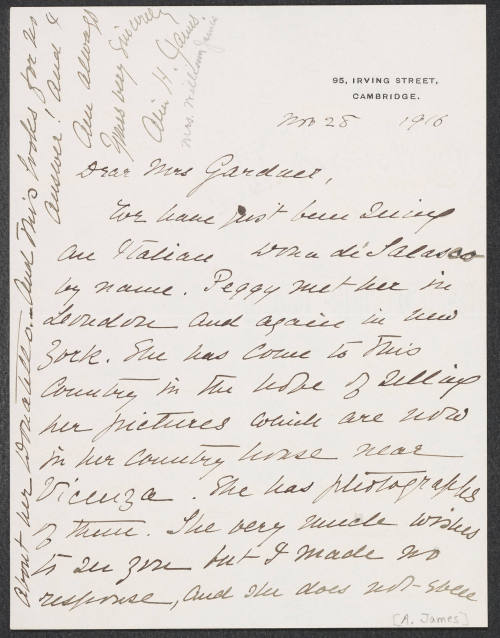 95, IRVING STREET,
CAMBRIDGE.
Nov 28 1916
Dear Mrs Gardner,
We have just been seeing
an Italian Dona di Salasco
by name. Peggy met her in
London and again in New
York. She has come to this
Country in the hope of selling
her pictures which are now
in her country house near
Vicenza. She has photographs
of them. She very much wishes
to see you but I made no
response, and she does not even
about her Donatello. And this looks for no
answer! and I
am always
Yours very sincerely
Alice H. James.
Mrs. William James
[A. James]